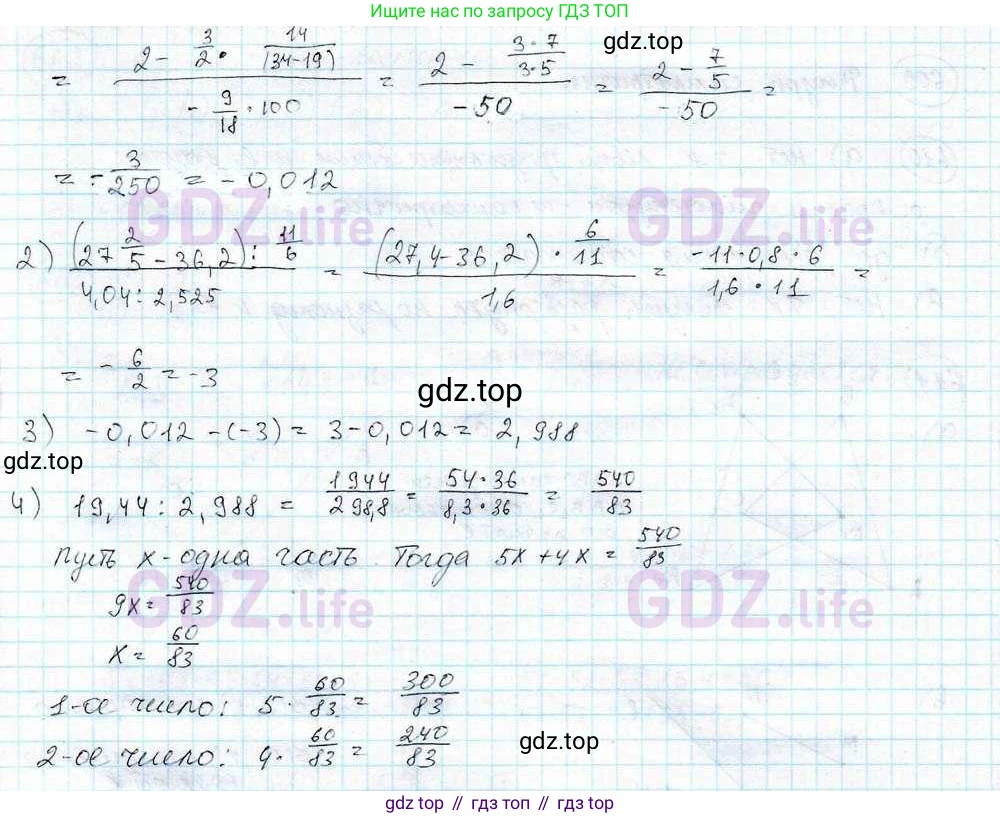 Ищите нас по запросу ГДЗ ТОП
= (2 - 3/2 · 14/(34-19)) / (- 9/18 · 100) = (2 - (3·7)/(3·5)) / (-50) = (2 - 7/5) / (-50) =
gdz.top
= - 3/250 = -0,012
GDZ.life GDZ.life
2) ((27 2/5 - 36,2) : 11/6) / (4,04 : 2,525) = ((27,4-36,2) · 6/11) / 1,6 = (-11·0,8·6) / (1,6·11) =
= - 6/2 = -3
gdz.top
3) -0,012 - (-3) = 3-0,012 = 2,988
gdz.top
4) 19,44 : 2,988 = 1944/298,8 = (54·36)/(8,3·36) = 540/83
пусть x - одна часть. Тогда 5x + 4x = 540/83
9x = 540/83
GDZ.life GDZ.life
x = 60/83
1-ое число: 5 · 60/83 = 300/83
2-ое число: 4 · 60/83 = 240/83
gdz.top
gdz.top // гдз топ // gdz.top